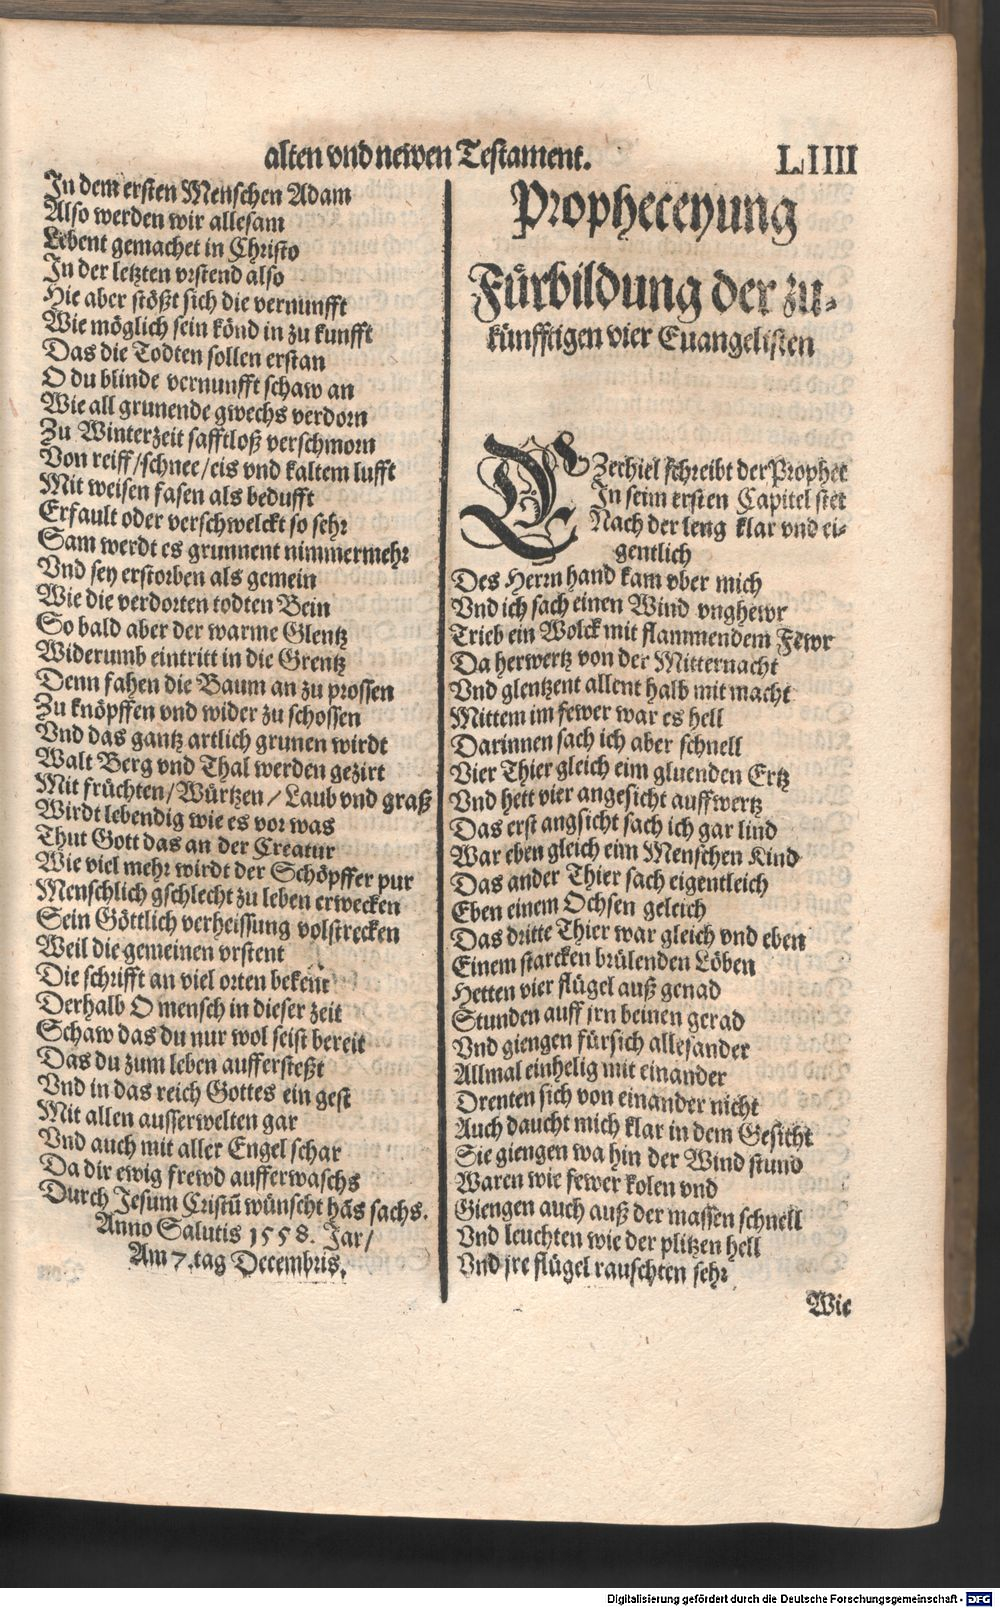 alten vnd newen Testament.
LIIII
In dem ersten Menschen Adam
Also werden wir allesam
Lebent gemachet in Christo
In der letzten vrstend also
Hie aber stößt sich die vernunfft
Wie möglich sein könd in zu kunfft
Das die Todten sollen erstan
O du blinde vernunfft schaw an
Wie all grunende gwechs verdorn
Zu Winterzeit safftloß verschmorn
Von reiff/schnee/eis vnd kaltem lufft
Mit weisen fasen als bedufft
Erfault oder verschwelckt so sehr
Sam werdt es grunnent nimmermehr
Vnd sey erstorben als gemein
Wie die verdorten todten Bein
So bald aber der warme Glentz
Widerumb eintritt in die Grentz
Denn fahen die Baum an zu prossen
Zu knöpffen vnd wider zu schossen
Vnd das gantz artlich grunen wirdt
Walt Berg vnd Thal werden gezirt
Mit früchten/Würtzen/Laub vnd graß
Wirdt lebendig wie es vor was
Thut Gott das an der Creatur
Wie viel mehr wirdt der Schöpffer pur
Menschlich gschlecht zu leben erwecken
Sein Göttlich verheissung volstrecken
Weil die gemeinen vrstent
Die schrifft an viel orten bekent
Derhalb O mensch in dieser zeit
Schaw das du nur wol seist bereit
Das du zum leben auffersteßt
Vnd in das reich Gottes ein gest
Mit allen ausserwelten gar
Vnd auch mit aller Engel schar
Da dir ewig frewd aufferwachs
Durch Jesum Cristū wünscht hās sachs.
Anno Salutis 1558. Jar/
Am 7. tag Decembris.
Propheceyung
Fürbildung der zu-
künfftigen vier Euangelisten
EZechiel schreibt der Prophet
In seim ersten Capitel stet
Nach der leng klar vnd ei-
gentlich
Des Herrn hand kam vber mich
Vnd ich sach einen Wind vnghewr
Trieb ein Wolck mit flammendem Fewr
Da herwertz von der Mitternacht
Vnd glentzent allent halb mit macht
Mittem im fewer war es hell
Darinnen sach ich aber schnell
Vier Thier gleich eim gluenden Ertz
Vnd hett vier angesicht auffwertz
Das erst angsicht sach ich gar lind
War eben gleich eim Menschen Kind
Das ander Thier sach eigentleich
Eben einem Ochsen geleich
Das dritte Thier war gleich vnd eben
Einem starcken brülenden Löben
Hetten vier flügel auß genad
Stunden auff jrn beinen gerad
Vnd giengen fürsich allesander
Allmal einhelig mit einander
Drenten sich von einander nicht
Auch daucht mich klar in dem Gesicht
Sie giengen wa hin der Wind stund
Waren wie fewer kolen vnd
Giengen auch auß der massen schnell
Vnd leuchten wie der plitzen hell
Vnd jre flügel rauschten sehr
Wie
Digitalisierung gefördert durch die Deutsche Forschungsgemeinschaft - DFG